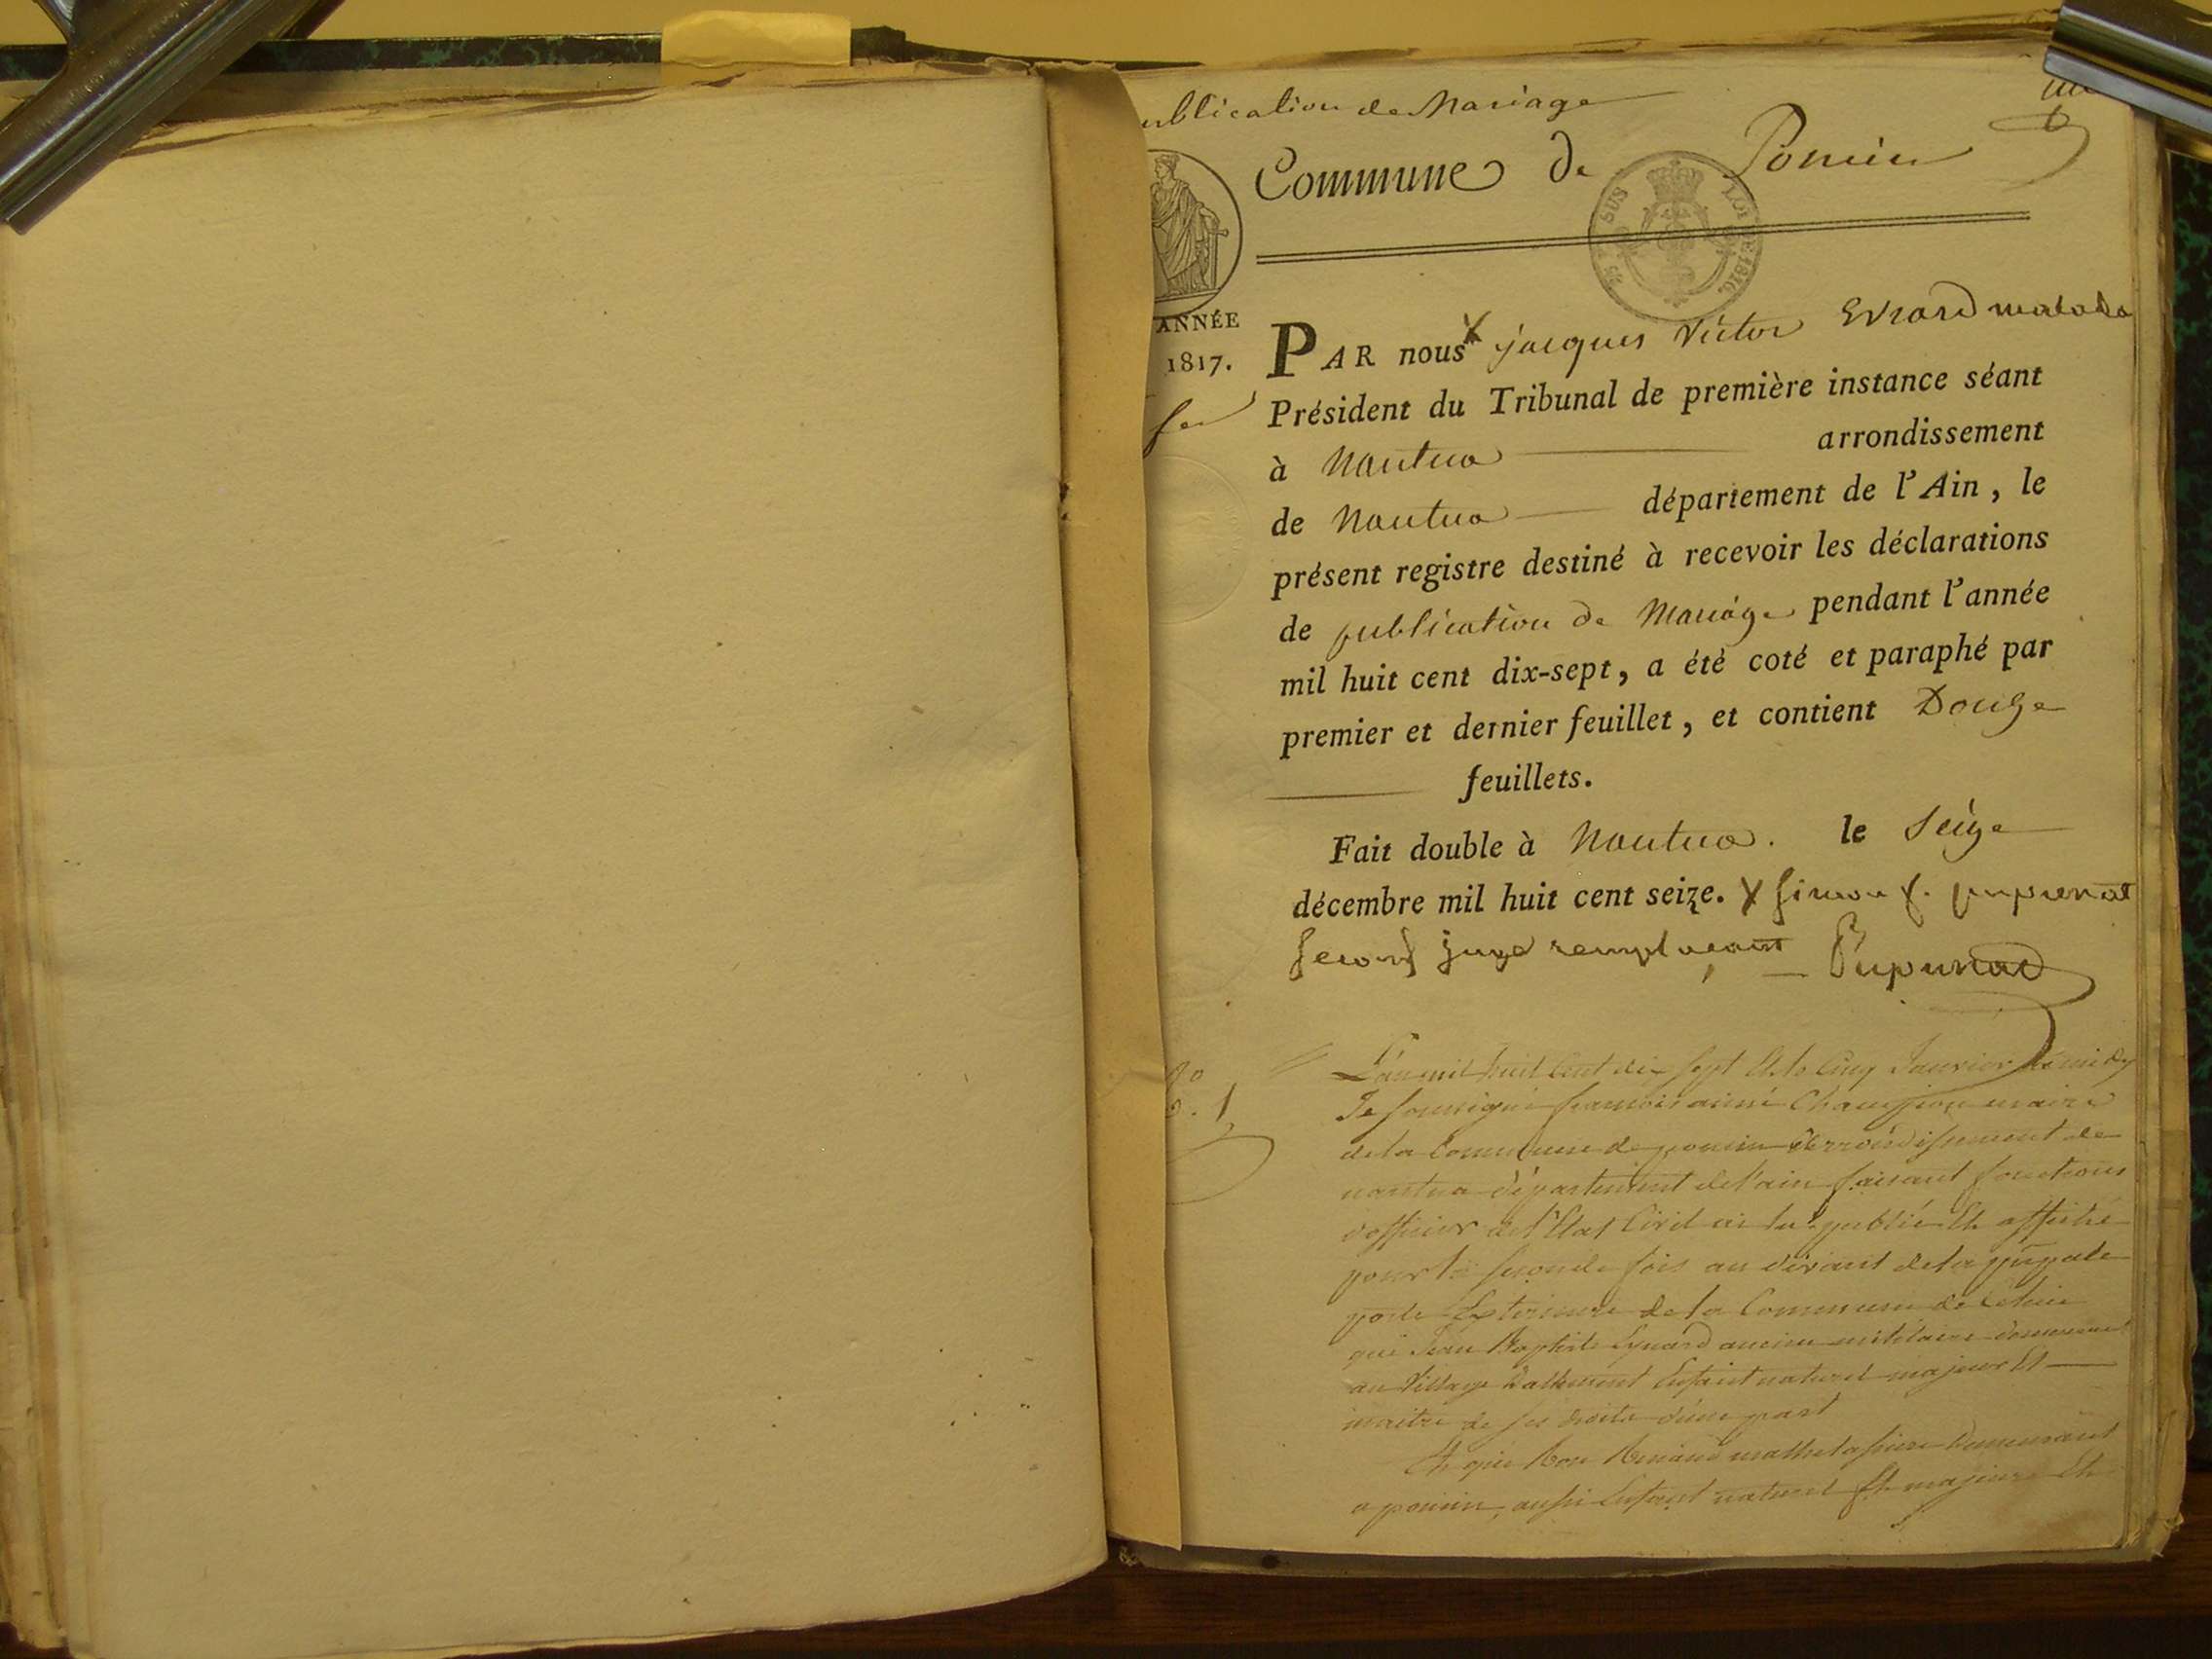 ublication de Mariage
Commune de Poncin
SUS LOI DE 1816.
ANNÉE
1817.
PAR nous X jacques Victor Evrard malade
Président du Tribunal de première instance séant
à Nantua arrondissement
de Nantua département de l'Ain, le
présent registre destiné à recevoir les déclarations
de publication de Mariage pendant l'année
mil huit cent dix-sept, a été coté et paraphé par
premier et dernier feuillet, et contient Douze
feuillets.
Fait double à Nantua. le Seize
décembre mil huit cent seize. X Simon f. pupunat
second juge remplaçant Pupunat
No. 1
L'an mil huit Cent dix Sept et le Cinq Janvier a midy
Je soussigné francois aimé Champion maire
de la Commune de poncin arrondissement de
nantua département de l'ain faisant fonctions
d'officier de l'Etat Civil ai lu publié Et affiché
pour la seconde fois au devant de la
porte Exterieure de la Commune de
que Jean Baptiste Eynard ancien militaire demeurant
au Village d'allement Enfant naturel majeur Et
maitre de ses droits d'une part
Et que demeurant
a poncin, aussi Enfant naturel Et majeure Et